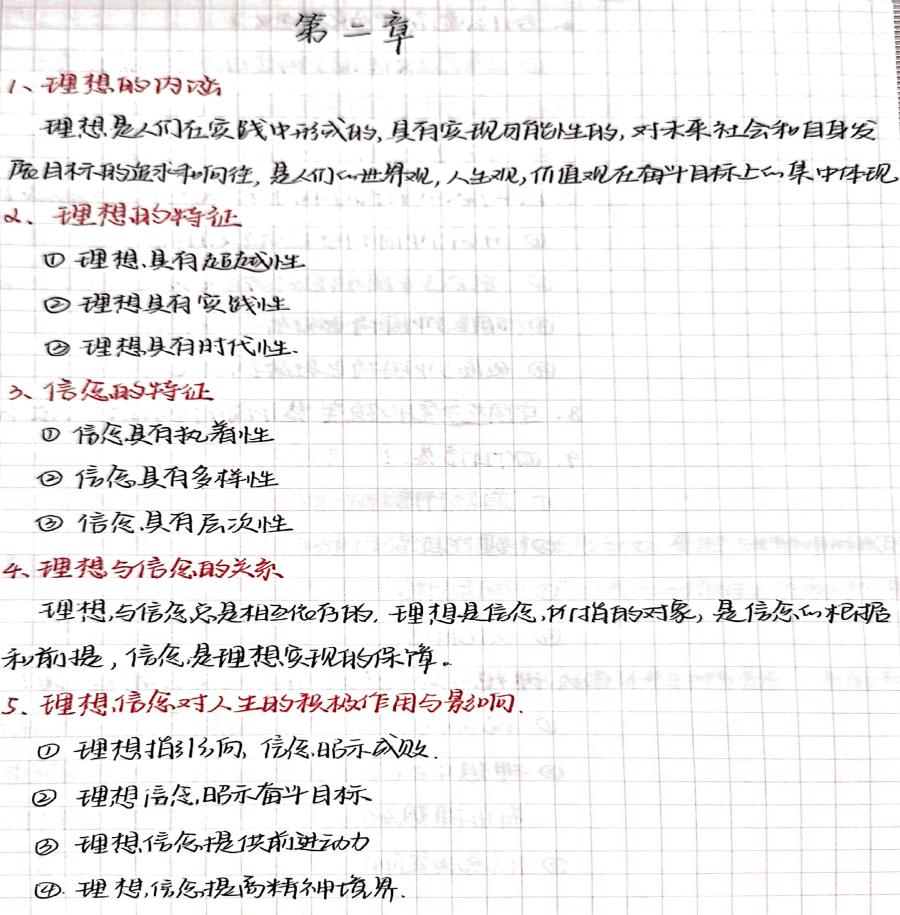 第二章
1、理想的内涵
理想是人们在实践中形成的,具有实现可能性的,对未来社会和自身发
展目标的追求和向往,是人们的世界观,人生观,价值观在奋斗目标上的集中体现
2、理想的特征
① 理想具有超越性
② 理想具有实践性
③ 理想具有时代性.
3、信念的特征
① 信念具有执着性
② 信念具有多样性
③ 信念具有层次性
4、理想与信念的关系
理想与信念总是相互依存的.理想是信念所指的对象,是信念的根据
和前提,信念是理想实现的保障。
5、理想信念对人生的积极作用与影响.
① 理想指引方向,信念昭示成败.
② 理想信念昭示奋斗目标
③ 理想信念提供前进动力
④. 理想信念提高精神境界.